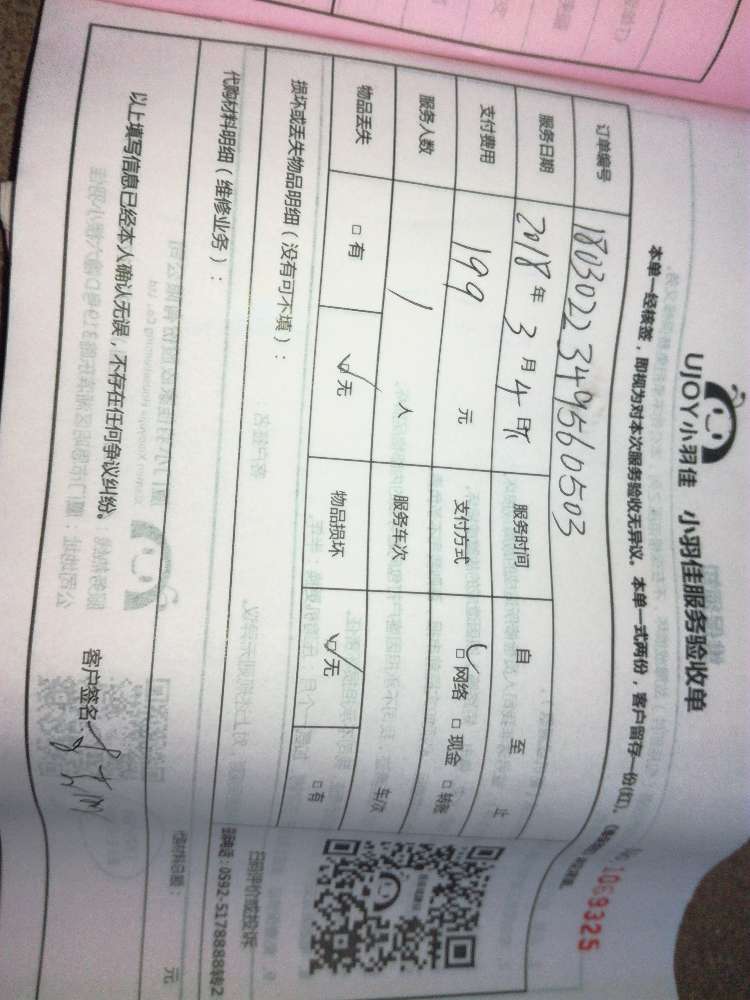 UJOY小羽佳 小羽佳服务验收单
No 1069325
本单一经核签,即视为对本次服务验收无异议。本单一式两份,客户留存一份(红)。
订单编号 180302234956 0503
服务日期 2018年3月4日 服务时间 自 至 止
支付费用 199 元 支付方式 ☑网络 □现金 □转账
服务人数 1 人 服务车次 车次
物品丢失 □有 ☑无 物品损坏 ☑无 □有
损坏或丢失物品明细(没有可不填):
代购材料明细(维修业务):
代购材料总额: 元
以上填写信息已经本人确认无误,不存在任何争议纠纷。 客户签名:
扫码评价或投诉
电话:0592-5178888转2